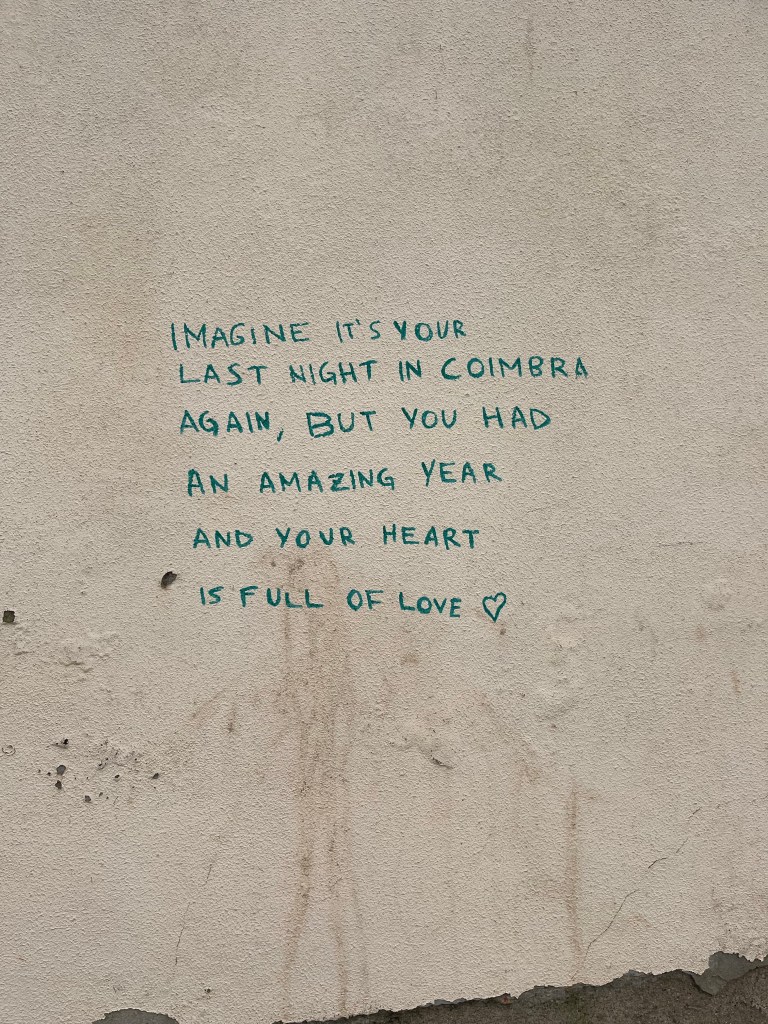 IMAGINE IT'S YOUR
LAST NIGHT IN COIMBRA
AGAIN, BUT YOU HAD
AN AMAZING YEAR
AND YOUR HEART
IS FULL OF LOVE ♡